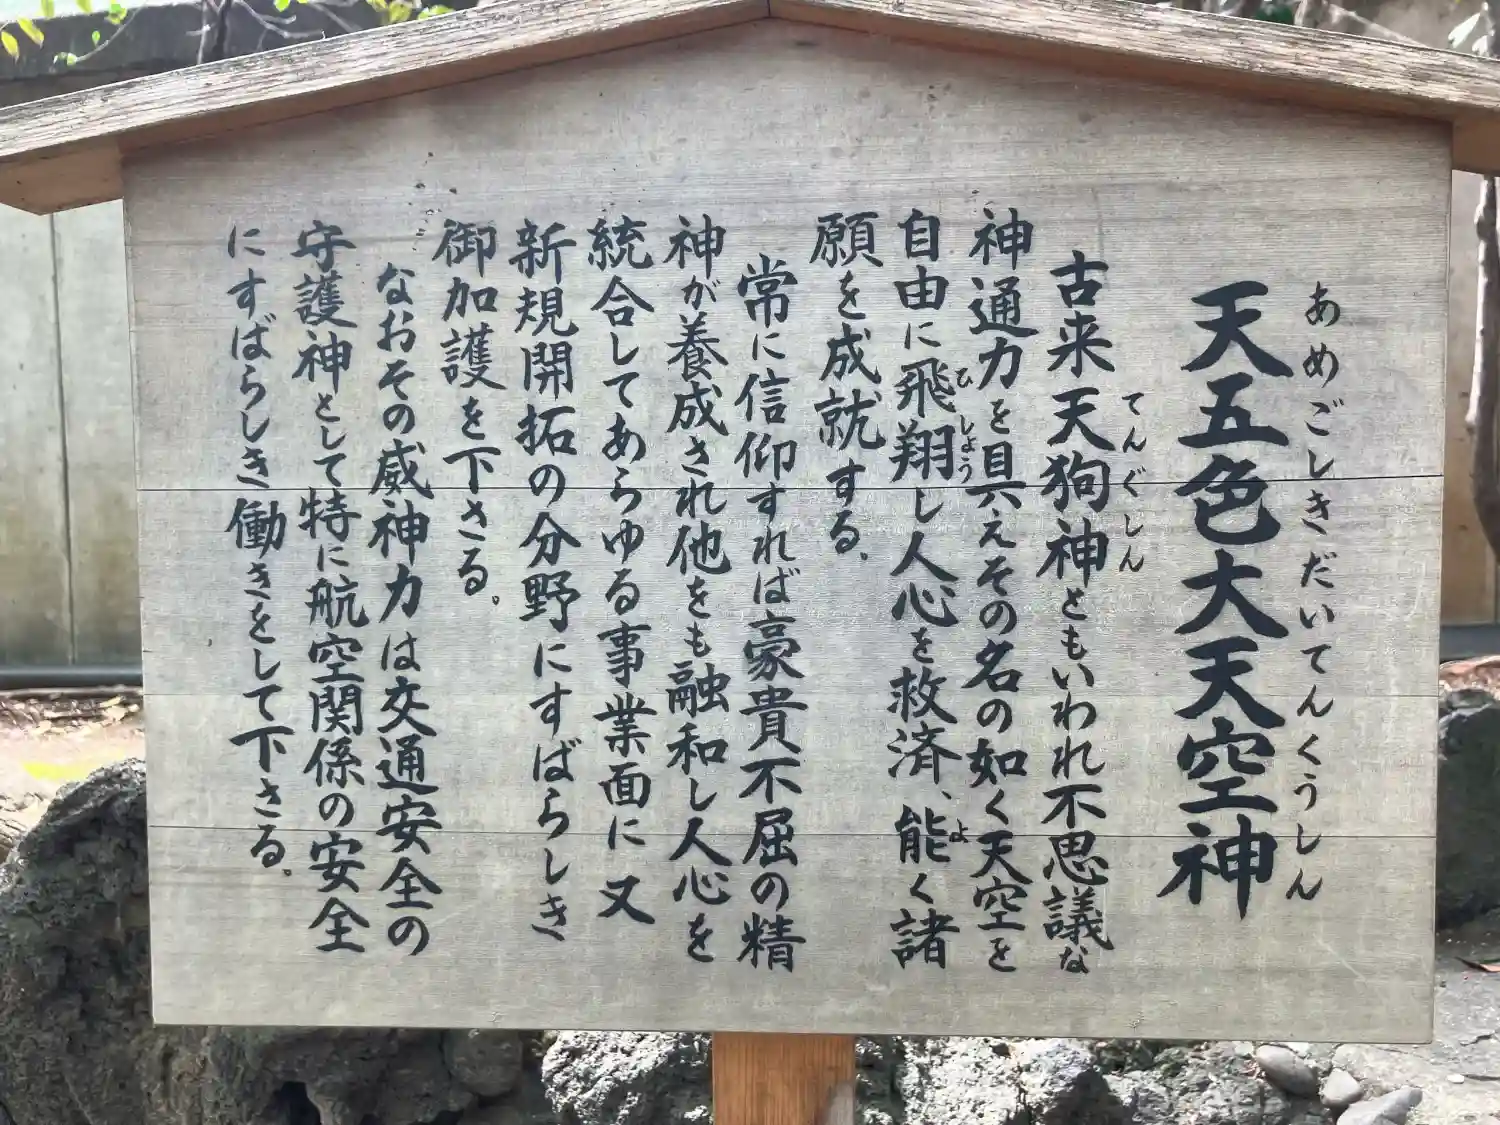 あめごしきだいてんくうしん
天五色大天空神
古来天狗神ともいわれ不思議な
てんぐしん
神通力を具えその名の如く天空を
自由に飛翔し人心を救済、能く諸
ひしょう
よ
願を成就する、
常に信仰すれば豪貴不屈の精
神が養成され他をも融和し人心を
統合してあらゆる事業面に又
新規開拓の分野にすばらしき
御加護を下さる。
なおその威神力は交通安全の
守護神として特に航空関係の安全
にすばらしき働きをして下さる。